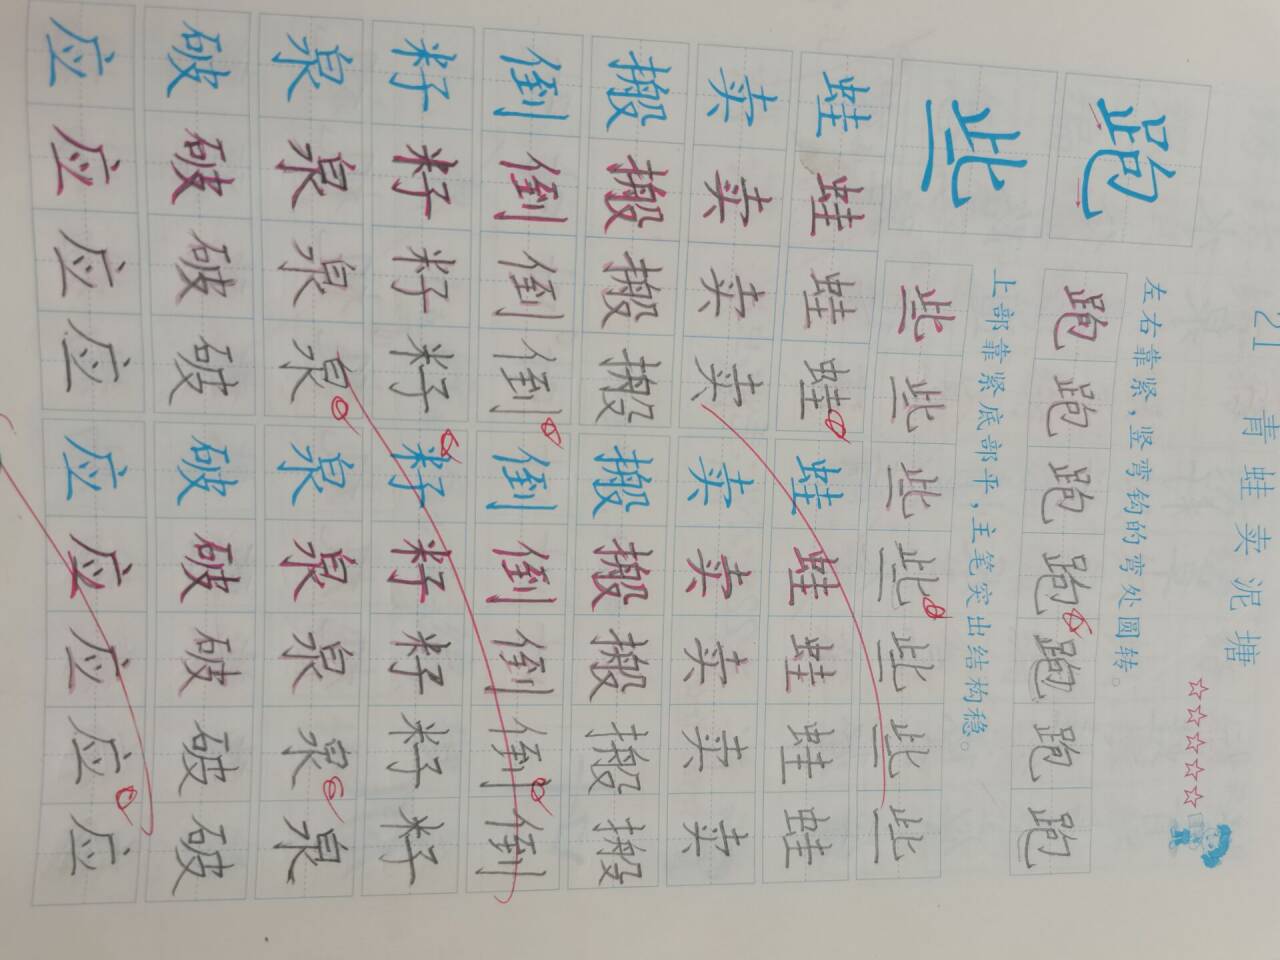 21 青蛙卖泥塘
跑
左右靠紧，竖弯钩的弯处圆转。
跑跑跑跑跑跑跑
些
上部靠紧底部平，主笔突出结构稳。
些些些些些些些
蛙蛙蛙蛙蛙蛙蛙蛙蛙
卖卖卖卖卖卖卖卖卖
搬搬搬搬搬搬搬搬搬
倒倒倒倒倒倒倒倒倒
籽籽籽籽籽籽籽籽籽
泉泉泉泉泉泉泉泉泉
破破破破破破破破破
应应应应应应应应应